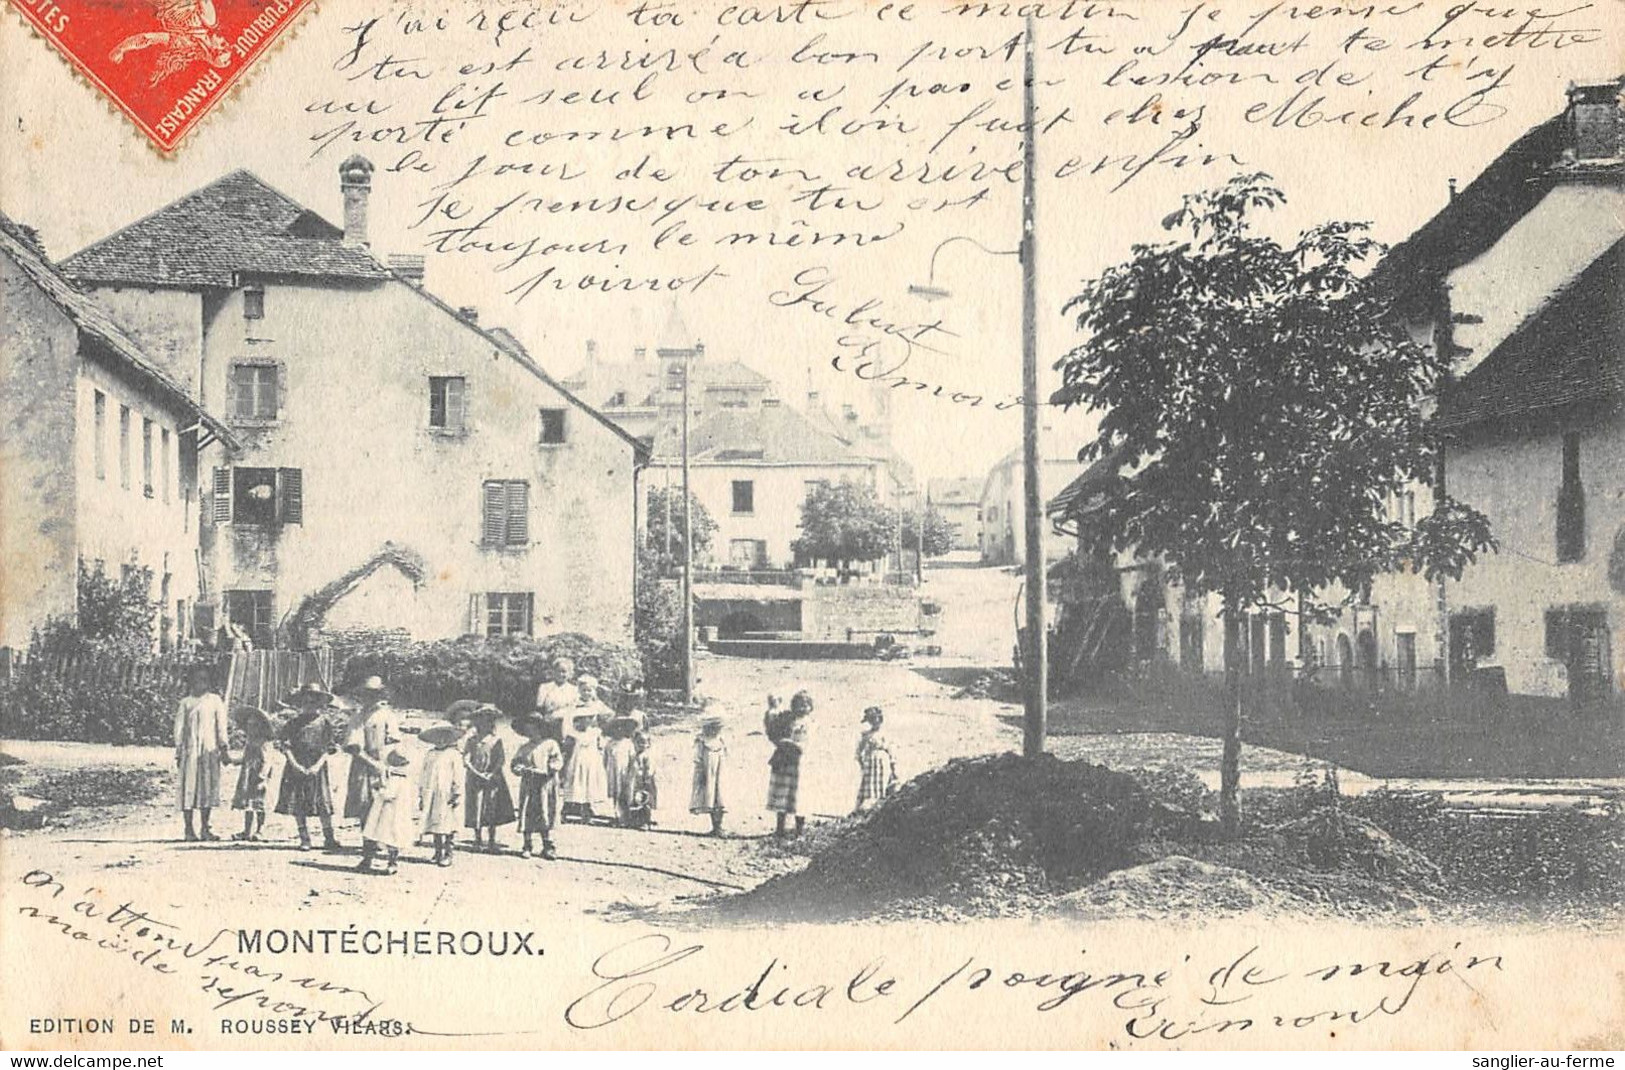 POSTES
REPUBLIQUE
FRANÇAISE
J'ai reçu ta carte ce matin je pense que
tu est arrivé a bon port tu a peut te mettre
au lit seul on a pas eu besion de t'y
porté comme ilon fait chez Michel
le jour de ton arrivé enfin
je pense que tu est
toujours le même
poirrot
Edmond
n'attons pas un
mois de reponse
MONTÉCHEROUX.
Cordiale poigné de main
Edmond
EDITION DE M. ROUSSEY VILARS.
sanglier-au-ferme